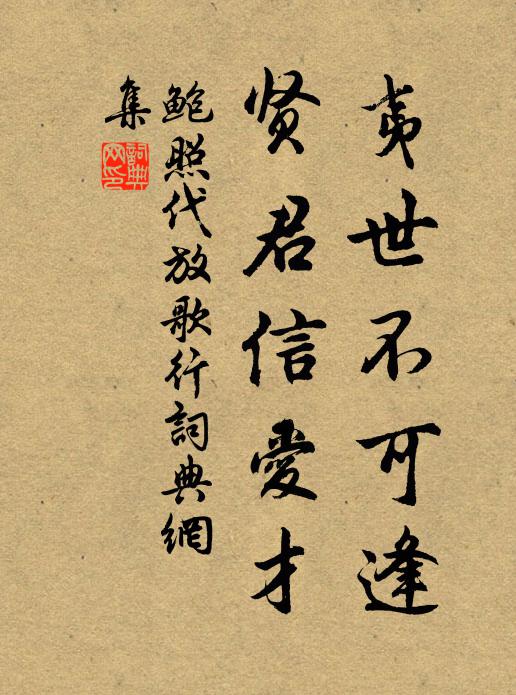 夷世不可逢
贤君信愛才
鲍照代放歌行詞典網
集
詞典網印